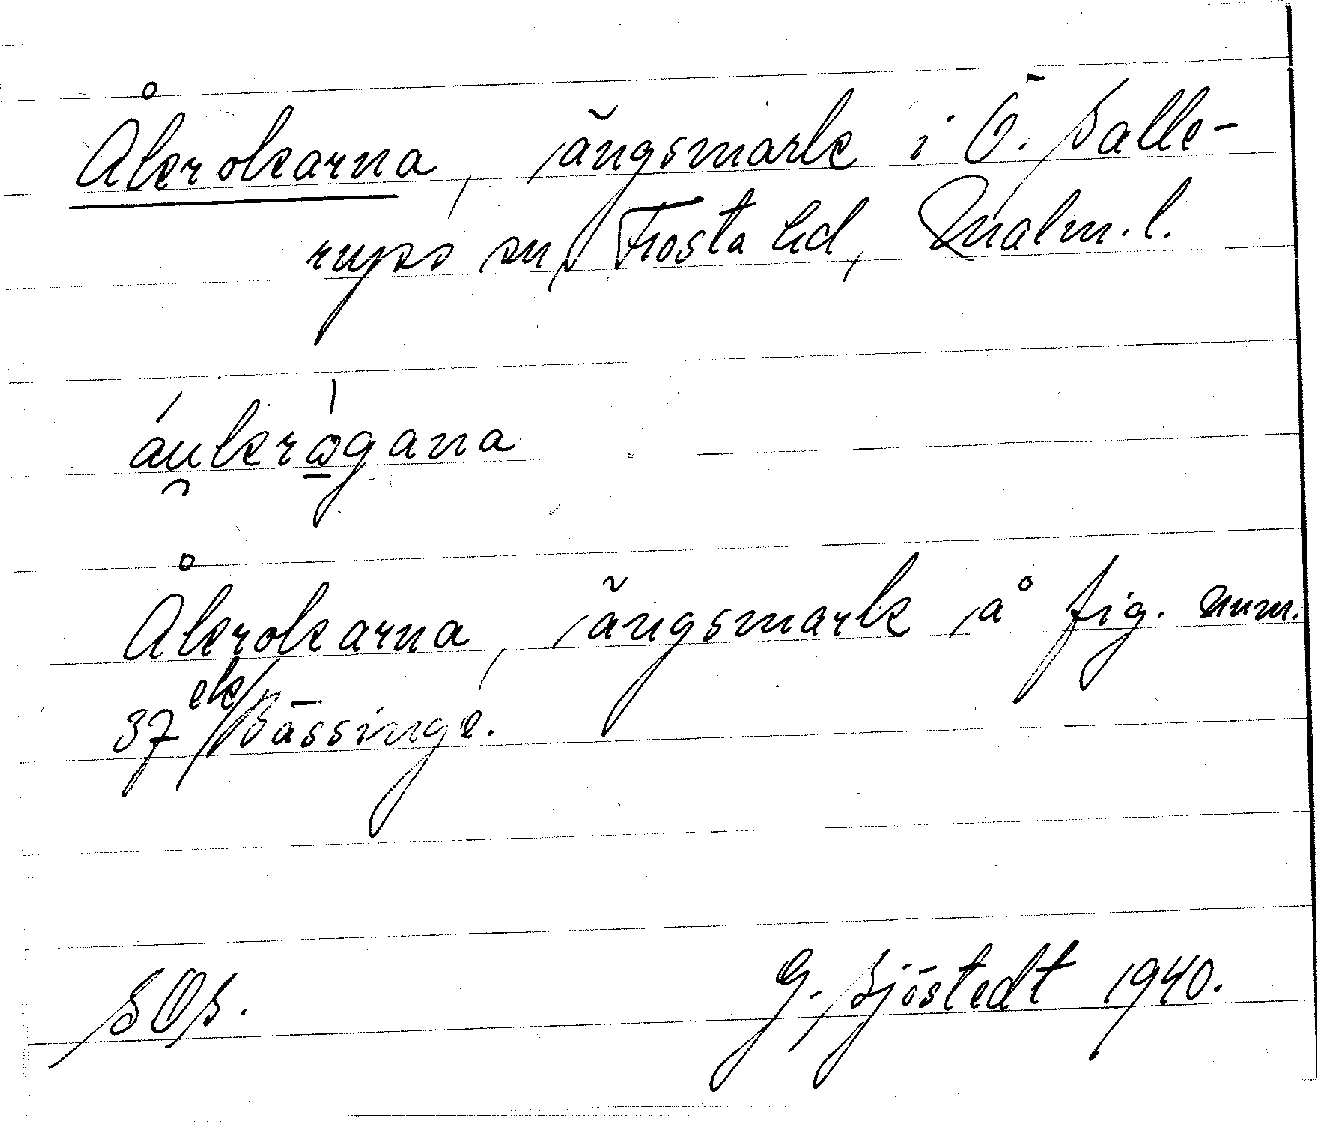 Åkrokarna, ängsmark i Ö. Salle-
rups sn, Frosta hd, Malm. l.
áu̯kerògana
Åkrokarna, ängsmark å fig. num.
37 ek/Sässinge.
SOS.
G. Sjöstedt 1940.